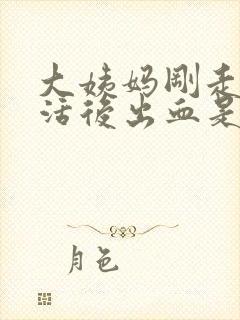 大姨妈刚走
活後出血是
月色